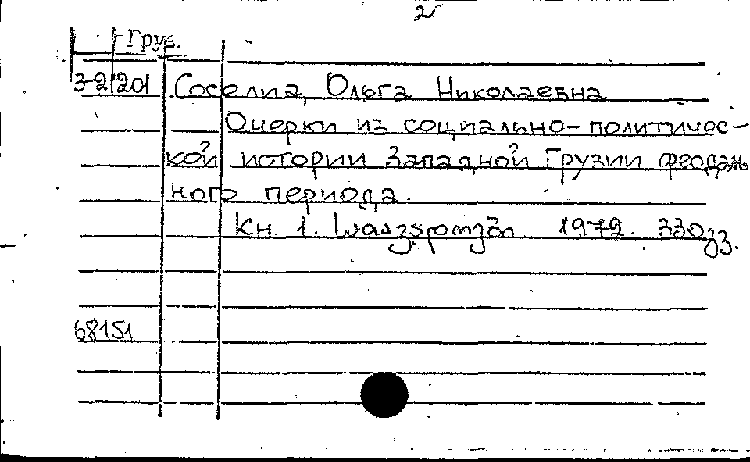 2
Груз.
3-2/201 Соселиа, Ольга Николаевна
Очерки из социально-политичес-
кой истории Западной Грузии феодаль
ного периода.
Кн. 1. 1979. 330გვ.
68151